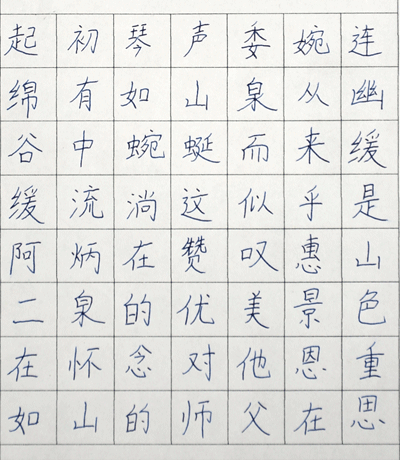 起初琴声委婉连
绵有如山泉从幽
谷中蜿蜒而来缓
缓流淌这似乎是
阿炳在赞叹惠山
二泉的优美景色
在怀念对他恩重
如山的师父在思